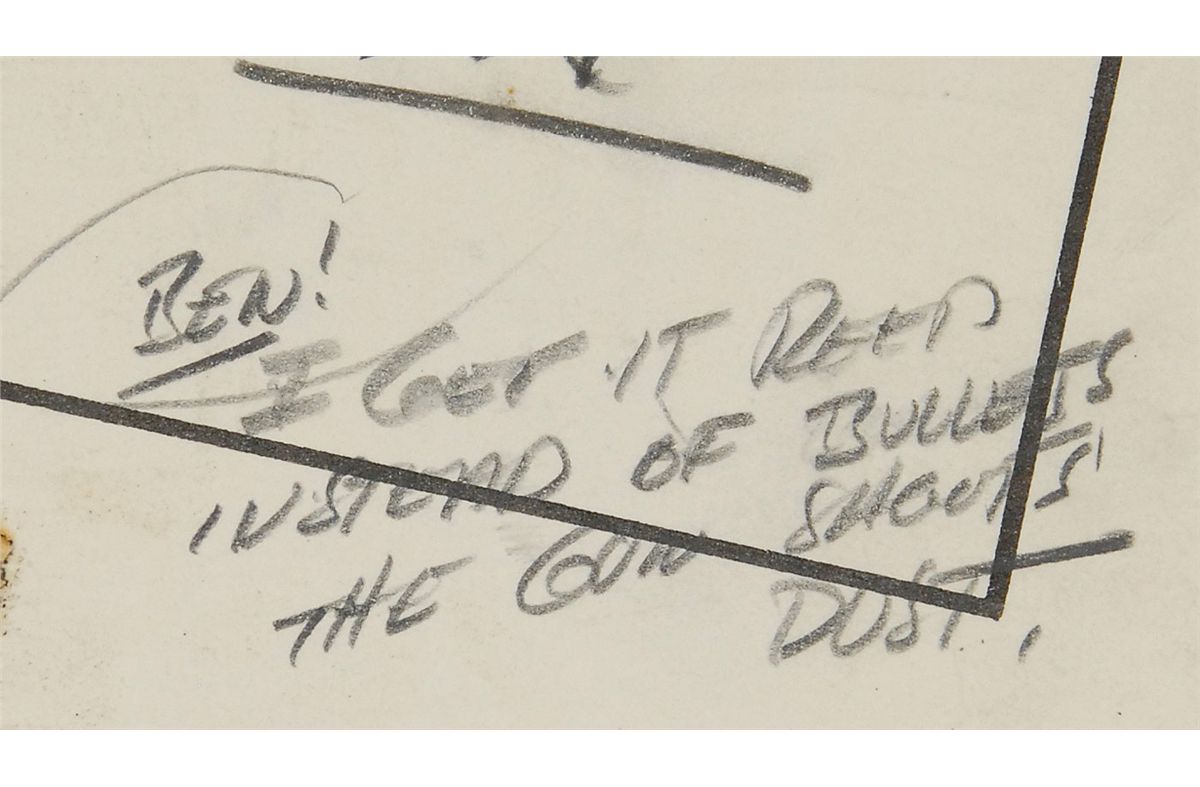 BEN!
I GET IT REED
INSTEAD OF BULLETS
THE GUN SHOOTS
DUST.